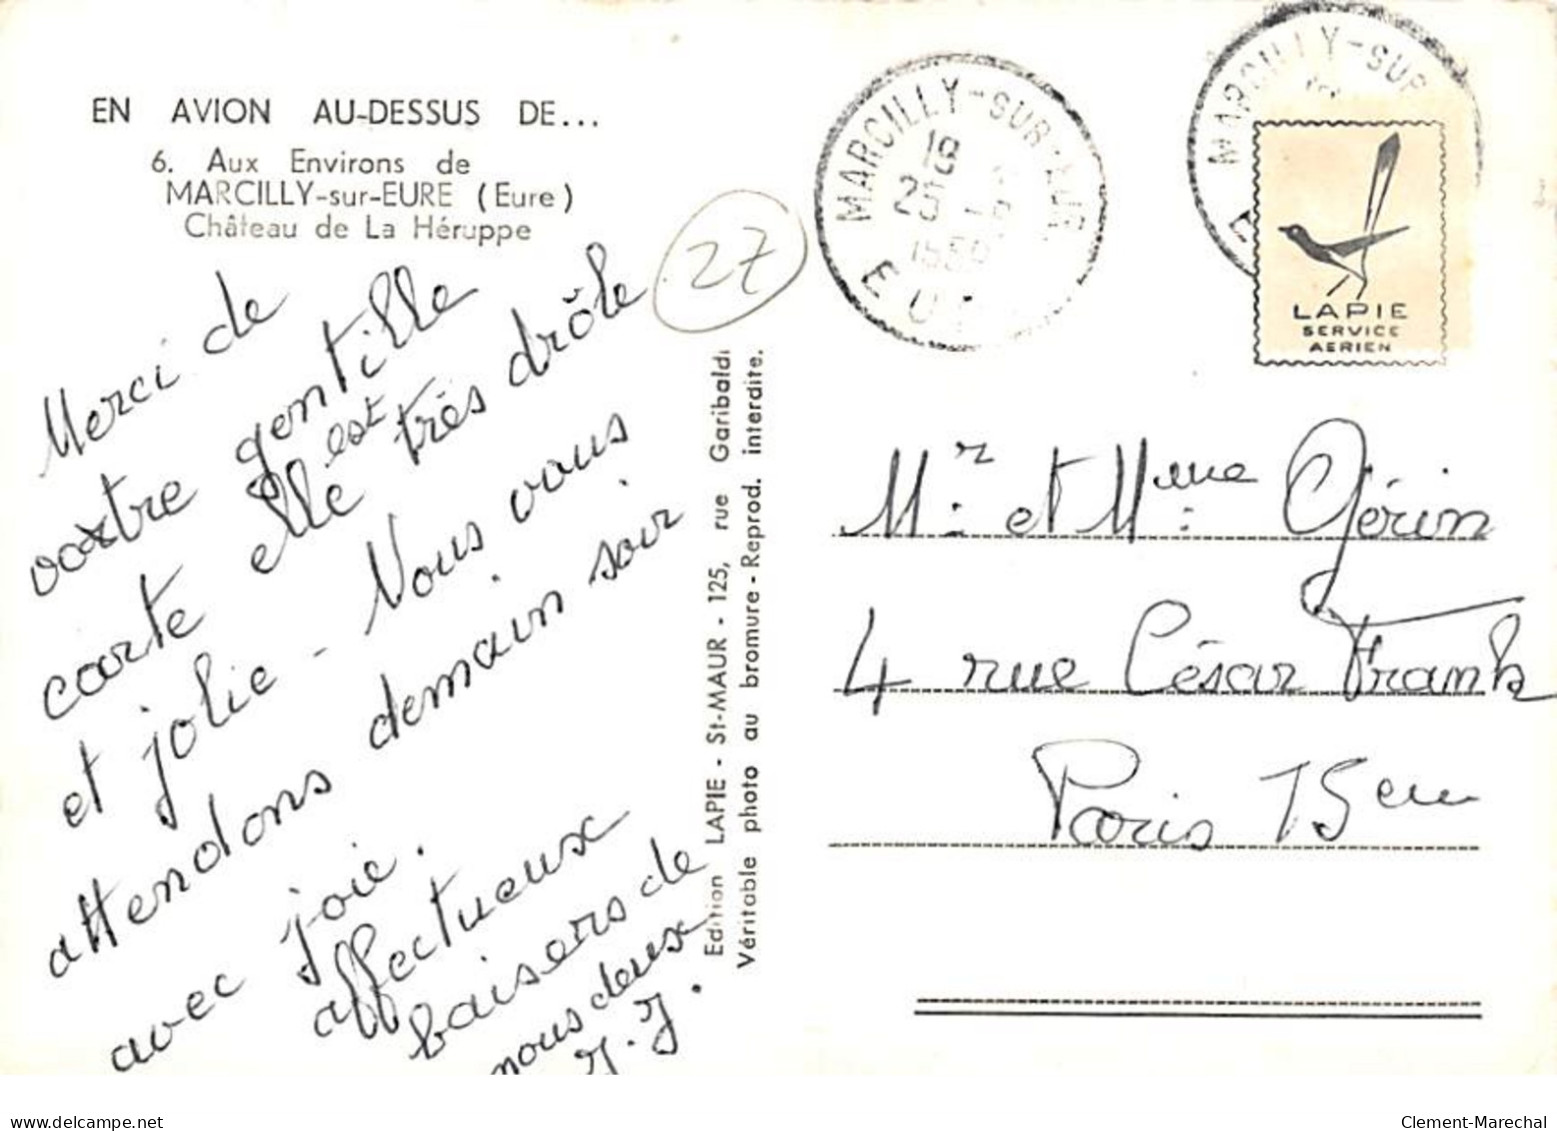 EN AVION AU-DESSUS DE...
6. Aux Environs de
MARCILLY-sur-EURE (Eure)
Château de La Héruppe
27
Merci de
votre gentille
carte elle est très drôle
et jolie - Nous vous
attendons demain soir
avec joie.
affectueux
baisers de
nous deux
J.
Edition LAPIE - St-MAUR - 125, rue Garibaldi
Véritable photo au bromure - Reprod. interdite.
MARCILLY-SUR-EUR
18
EU
MARCILLY-SUR
E
LAPIE
SERVICE
AERIEN
Mr. et Mme: Gérin
4 rue César Frank
Paris 15eme
delcampe.net
Clement-Marechal